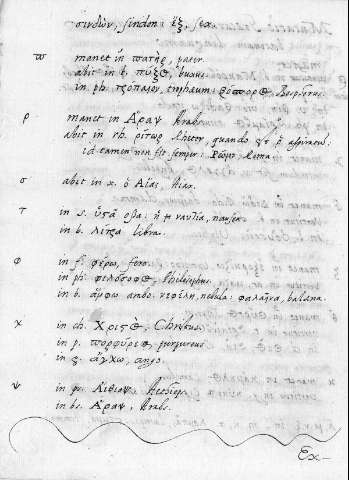 σινδὼν, sindon: ἕξ, sex.
ϖ manet in πατὴρ, pater.
abit in b, πύξος, buxus.
in ph. τρόπαιον, trophaeum: Βόσπορος, Bosphorus.
ρ manet in Ἄραψ Arabs.
abit in rh. ρήτωρ Rhetor, quando est ῥ aspiratum.
id tamen non fit semper: Ῥώμη, Roma.
σ abit in x. ὁ Αἴας, Aiax.
τ in s. ναυτία, nausea.
in b. λίτρα libra.
φ in f. φέρω, fero.
in ph. φιλόσοφος, Philosophus.
in b. ἄμφω ambo. νεφέλη, nebula: φάλαινα, balaena.
χ in ch. Χριστὸς, Christus.
in p. πορφύρεος, purpureus
in g. ἄγχω, ango.
ψ in ps. Αἰθίοψ, Aethiops
in bs. Ἄραψ, Arabs.
Ex-